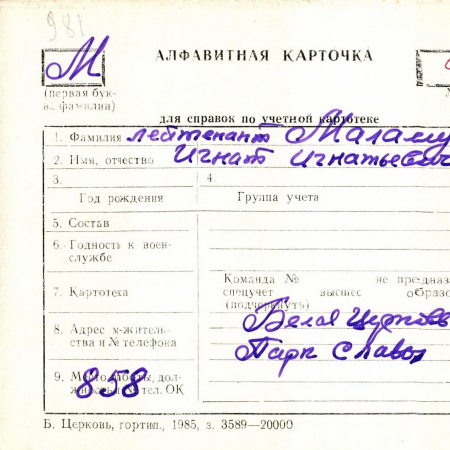 981
М
АЛФАВИТНАЯ КАРТОЧКА
(первая бук-
ва фамилии)
для справок по учетной картотеке
1. Фамилия лейтенант Маламу
2. Имя, отчество Игнат Игнатьевич
3.
4.
Год рождения
Группа учета
5. Состав
6. Годность к воен-
службе
7. Картотека
Команда № не предназ
спецучет высшее образо
(подчеркнуть)
8. Адрес м-житель-
ства и № телефона
Белая Церковь
Парк Славы
9. Место работы, дол-
жность и № тел. ОК
858
Б. Церковь, гортип., 1985, з. 3589—20000